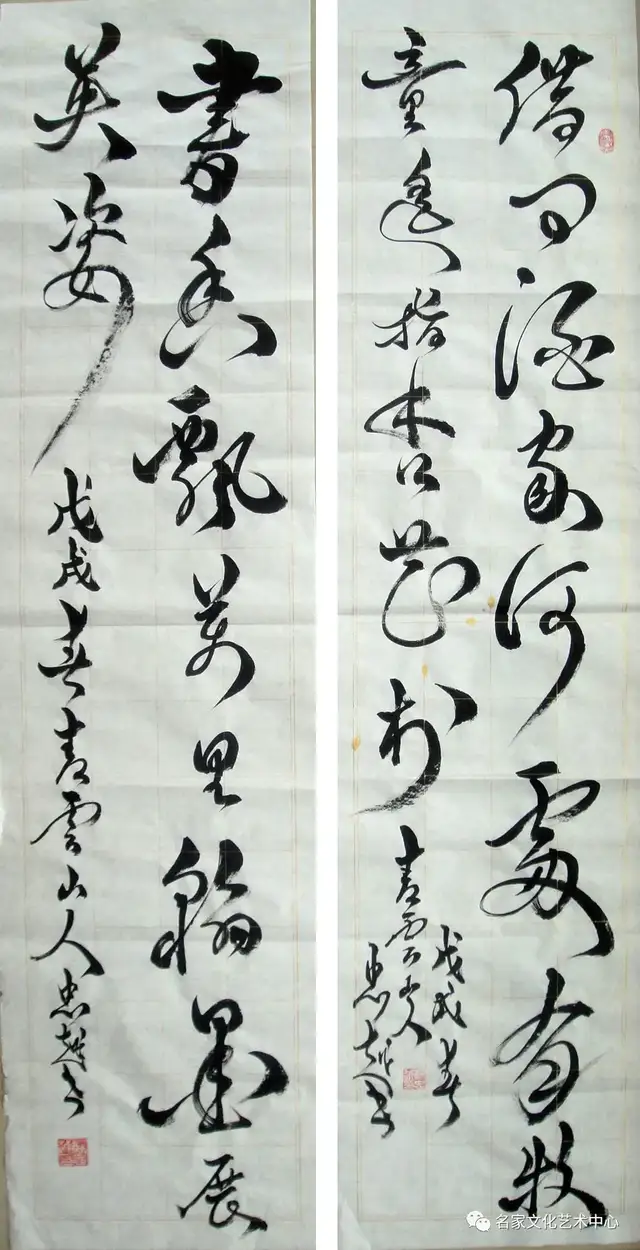 借问酒家何處有牧
童遥指杏花村
戊戌春
青雲山人
忠越书
書香飘萬里翰墨展
英姿
戊戌春青雲山人忠越书
名家文化艺术中心